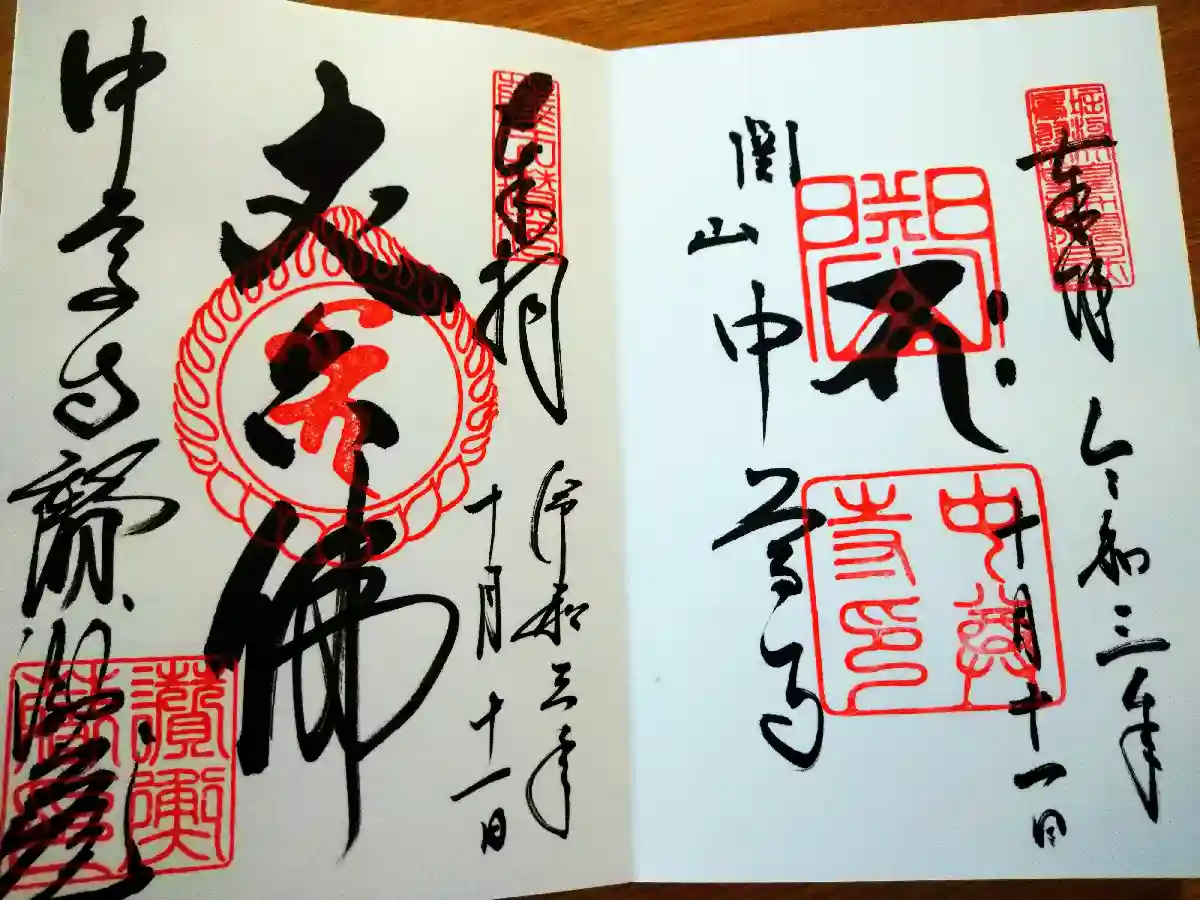 奉拝
令和三年
十月十一日
中尊
寺印
関山
中尊寺
奉拝
令和三年
十月十一日
丈六佛
中尊寺讃衡蔵
讃衡
蔵印